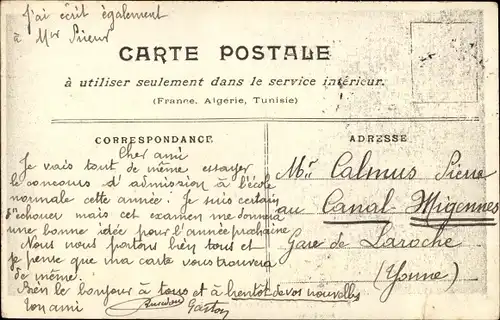 J'ai écrit également
à Mur Pieur
CARTE POSTALE
à utiliser seulement dans le service intérieur.
(France, Algerie, Tunisie)
CORRESPONDANCE
Cher ami
Je vais tout de même essayer
le concours d'admission à l'école
normale cette année. Je suis certain
d'échouer mais cet examen me donnera
une bonne idée pour l'année prochaine
Nous nous portons bien tous et
je pense que ma carte vous trouvera
de même.
Bien le bonjour à tous et à bientôt de vos nouvelles
Ton ami Gaston
ADRESSE
Mr Calmus Pierre
au Canal-Migennes
Gare de Laroche
(Yonne)